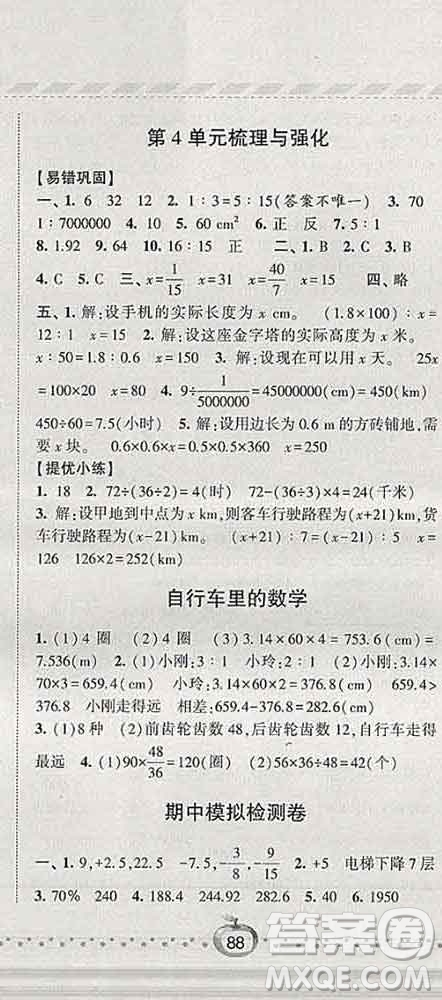 第4单元梳理与强化
【易错巩固】
一、1. 6 32 12 2. 1∶3=5∶15(答案不唯一) 3. 70
1∶7000000 4. 10 5. 60 cm² 6. 正 反 7. 5∶1
8. 1.92 9. 64 10. 16∶15 正 二、1. B 2. B 3. B
4. C 5. C 三、x=1/15 x=31 x=40/7 x=15 四、略
五、1. 解:设手机的实际长度为 x cm。 (1.8×100)∶x=
12∶1 x=15 2. 解:设这座金字塔的实际高度为 x 米。
x∶50=1.8∶0.6 x=150 3. 解:设现在可以用 x 天。 25x
=100×20 x=80 4. 9÷1/5000000=45000000(cm)=450(km)
450÷60=7.5(小时) 5. 解:设用边长为 0.6 m 的方砖铺地,需
要 x 块。 0.6×0.6×x=0.5×0.5×360 x=250
【提优小练】
1. 18 2. 72÷(36÷2)=4(时) 72÷(36÷12)=24(千米)
3. 解:设甲地到中点为 x km,则客车行驶路程为(x+21)km,货
车行驶路程为(x-21)km。 (x+21)∶(x-21)=7∶5 x=
126 126×2=252(km)
自行车里的数学
1. (1)4 圈 (2)4 圈 (3)3.14×60×4=753.6(cm)=
7.536(m) 2. (1)小刚:3∶1 小玲:2∶1 (2)小刚:3.14×
70×3=659.4(cm) 小玲:3.14×60×2=376.8(cm) 659.4>
376.8 小刚走得远 相差:659.4-376.8=282.6(cm)
3. (1)8 种 (2)前齿轮齿数 48,后齿轮齿数 12,自行车走得
最远 4. (1)90×48/36=120(圈) (2)30×56÷40=42(个)
期中模拟检测卷
一、1. 9,+2.5,22.5 -7.5,-3/8,-9/1.5 2. +5 电梯下降 7 层
3. 70% 240 4. 188.4 244.92 282.6 5. 40 6. 1950
88
答案圈
MXQE.COM